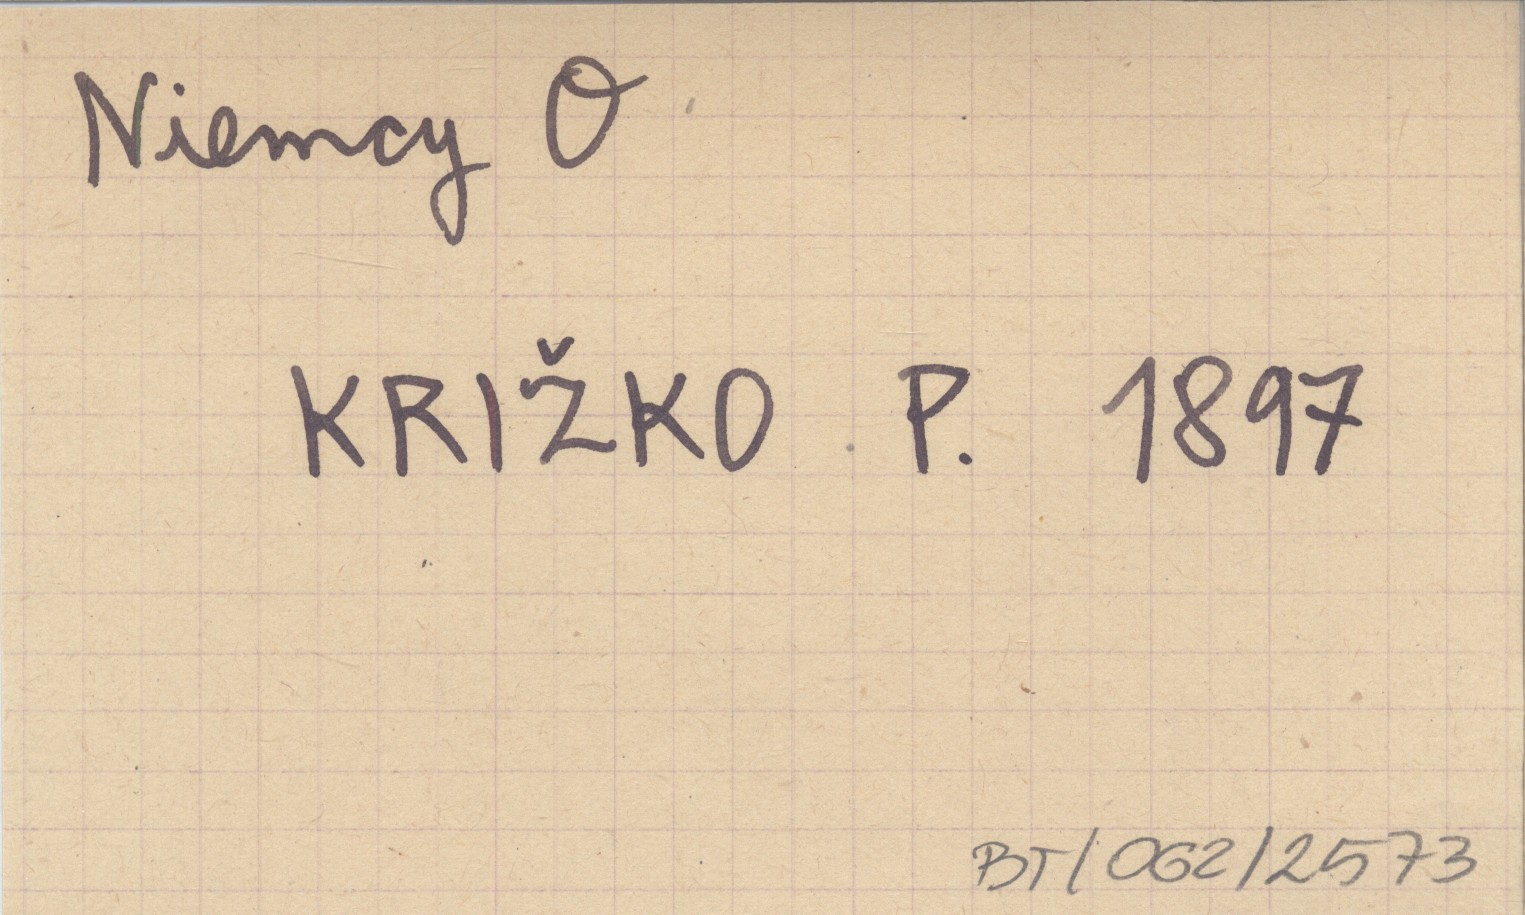 Niemcy O
KRIŽKO P. 1897
BT/062/2573